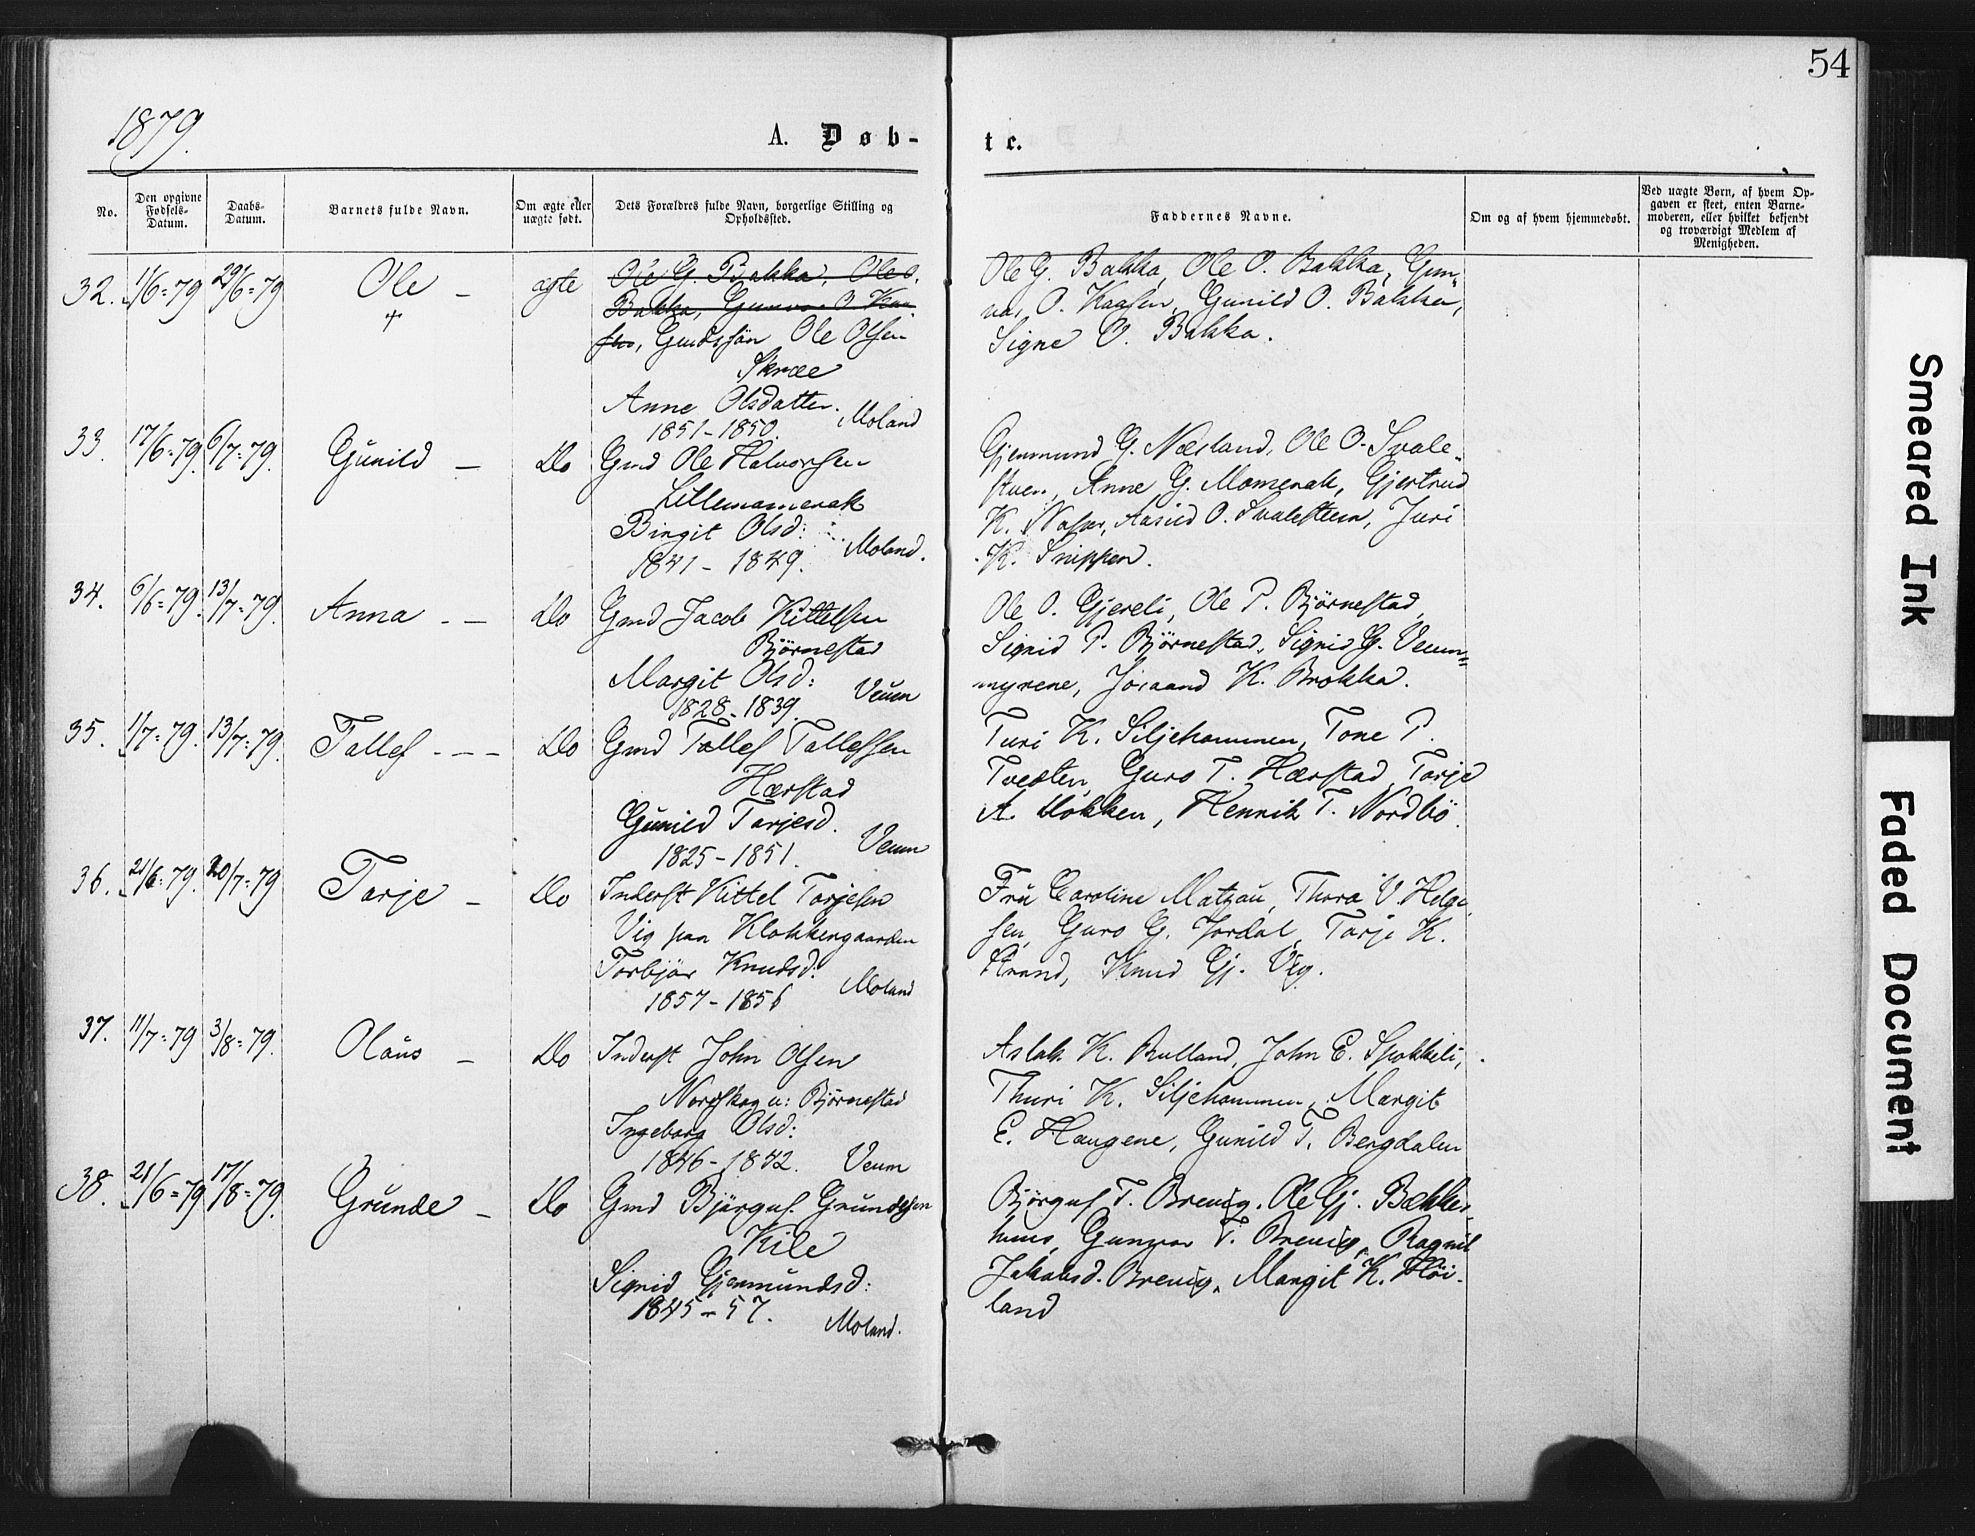 54
1879.
A. Døb-
te.
No.
Den opgivne Fødsels-Datum.
Daabs-Datum.
Barnets fulde Navn.
Om ægte eller uægte født.
Dets Forældres fulde Navn, borgerlige Stilling og Opholdssted.
Faddernes Navne.
Om og af hvem hjemmedøbt.
Ved uægte Børn, af hvem Opgaven er skeet, enten Barnemoderen, eller hvilket bekjendt og troværdigt Medlem af Menigheden.
32. 1/6=79 29/6=79 Ole – ægte
Ole G. Bakka, Ole O.
Bakka, Gunvor O. Kaa-
sen, Gmdssøn Ole Olsen
Skræe
Anne Olsdatter.
1851–1850. Moland
Ole G. Bakka, Ole O. Bakka, Gun-
vor O. Kaasen, Gunild O. Bakka,
Signe O. Bakka.
33. 17/6=79. 6/7=79. Gunild – Do
Gmd Ole Halvorsen
Lillemomerak
Birgit Olsd:
1841 – 1849. Moland.
Gjermund G. Næsland, Ole O. Svale-
stuen, Anne G. Momerak, Gjertrud
K. Aasild O. Svalestuen, Juri
K. Snippen.
34. 6/6=79. 13/7=79. Anna – – Do
Gmd Jacob Kittelsen
Bjørnestad
Margit Olsd:
1828–1839. Veum
Ole O. Gjereli, Ole P. Bjørnestad,
Sigrid P. Bjørnestad, Sigrid G. Veum=
myrene, Jøraand K. Brokka.
35. 1/7=79. 13/7=79. Tallef – – – Do
Gmd Tallef Tallefsen
Hærstad
Gunild Tarjesd.
1825–1851. Veum
Turi K. Siljehommen, Tone P.
Tvedten, Guro T. Hærstad, Tarje
A. Henrik T. Nordbö.
36. 21/6=79. 20/7=79 Tarje – Do
Inderst Kittel Tarjesen
Vig paa Klokkergaarden
Torbjør Knudsd:
1857–1856 Moland
Fru Caroline Matzau, Thora V. Helge-
sen, Guro G. Jordal, Tarje K.
Strand, Knud Gj. Vig.
37. 11/7=79 3/8=79. Olaus – Do
Inderst John Olsen
Norskog u: Bjørnestad
Ingeborg Olsd:
1846–1842. Veum
Aslak K. Rulland, John E. Spokkeli,
Thuri K. Siljehommen, Margit
E. Haugene, Gunild T. Bergdalen
38. 21/6=79 17/8=79. Grunde – Do
Gmd Bjørguf. Grundesen
Kile
Sigrid Gjermundsd:
1845–57. Moland.
Bjørguf T. Brevig, Ole Gj. Bække-
huus, Gunvor T. Brevig, Ragnil
Jakobsd. Brevig, Margit K. Höi-
land
Smeared Ink
Faded Document